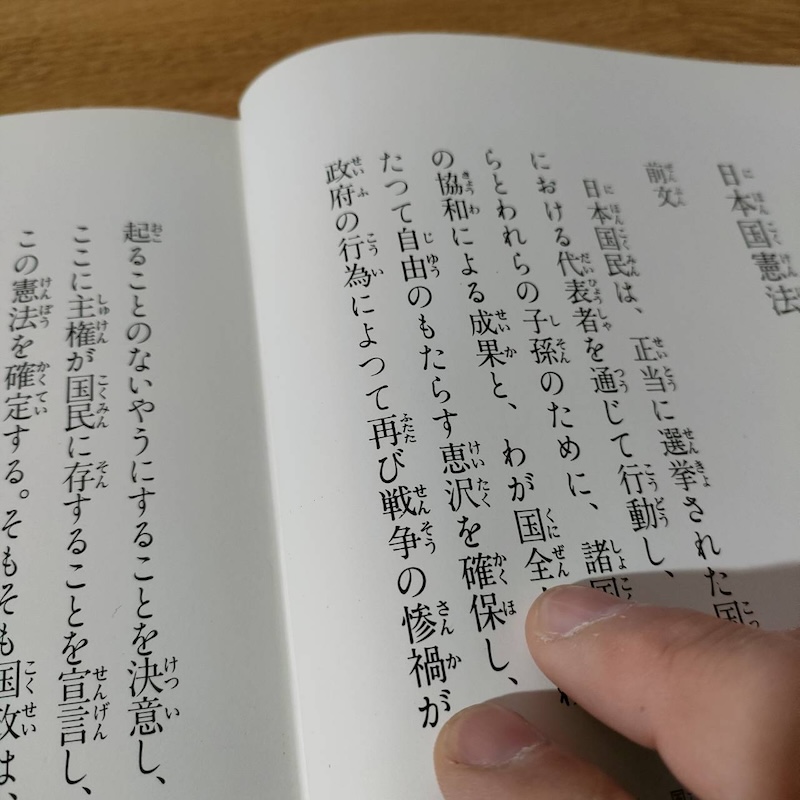 日本国憲法
前文
日本国民は、正当に選挙された国
における代表者を通じて行動し、
らとわれらの子孫のために、諸国
の協和による成果と、わが国全
たつて自由のもたらす恵沢を確保し、
政府の行為によつて再び戦争の惨禍が
起ることのないやうにすることを決意し、
ここに主権が国民に存することを宣言し、
この憲法を確定する。そもそも国政は、